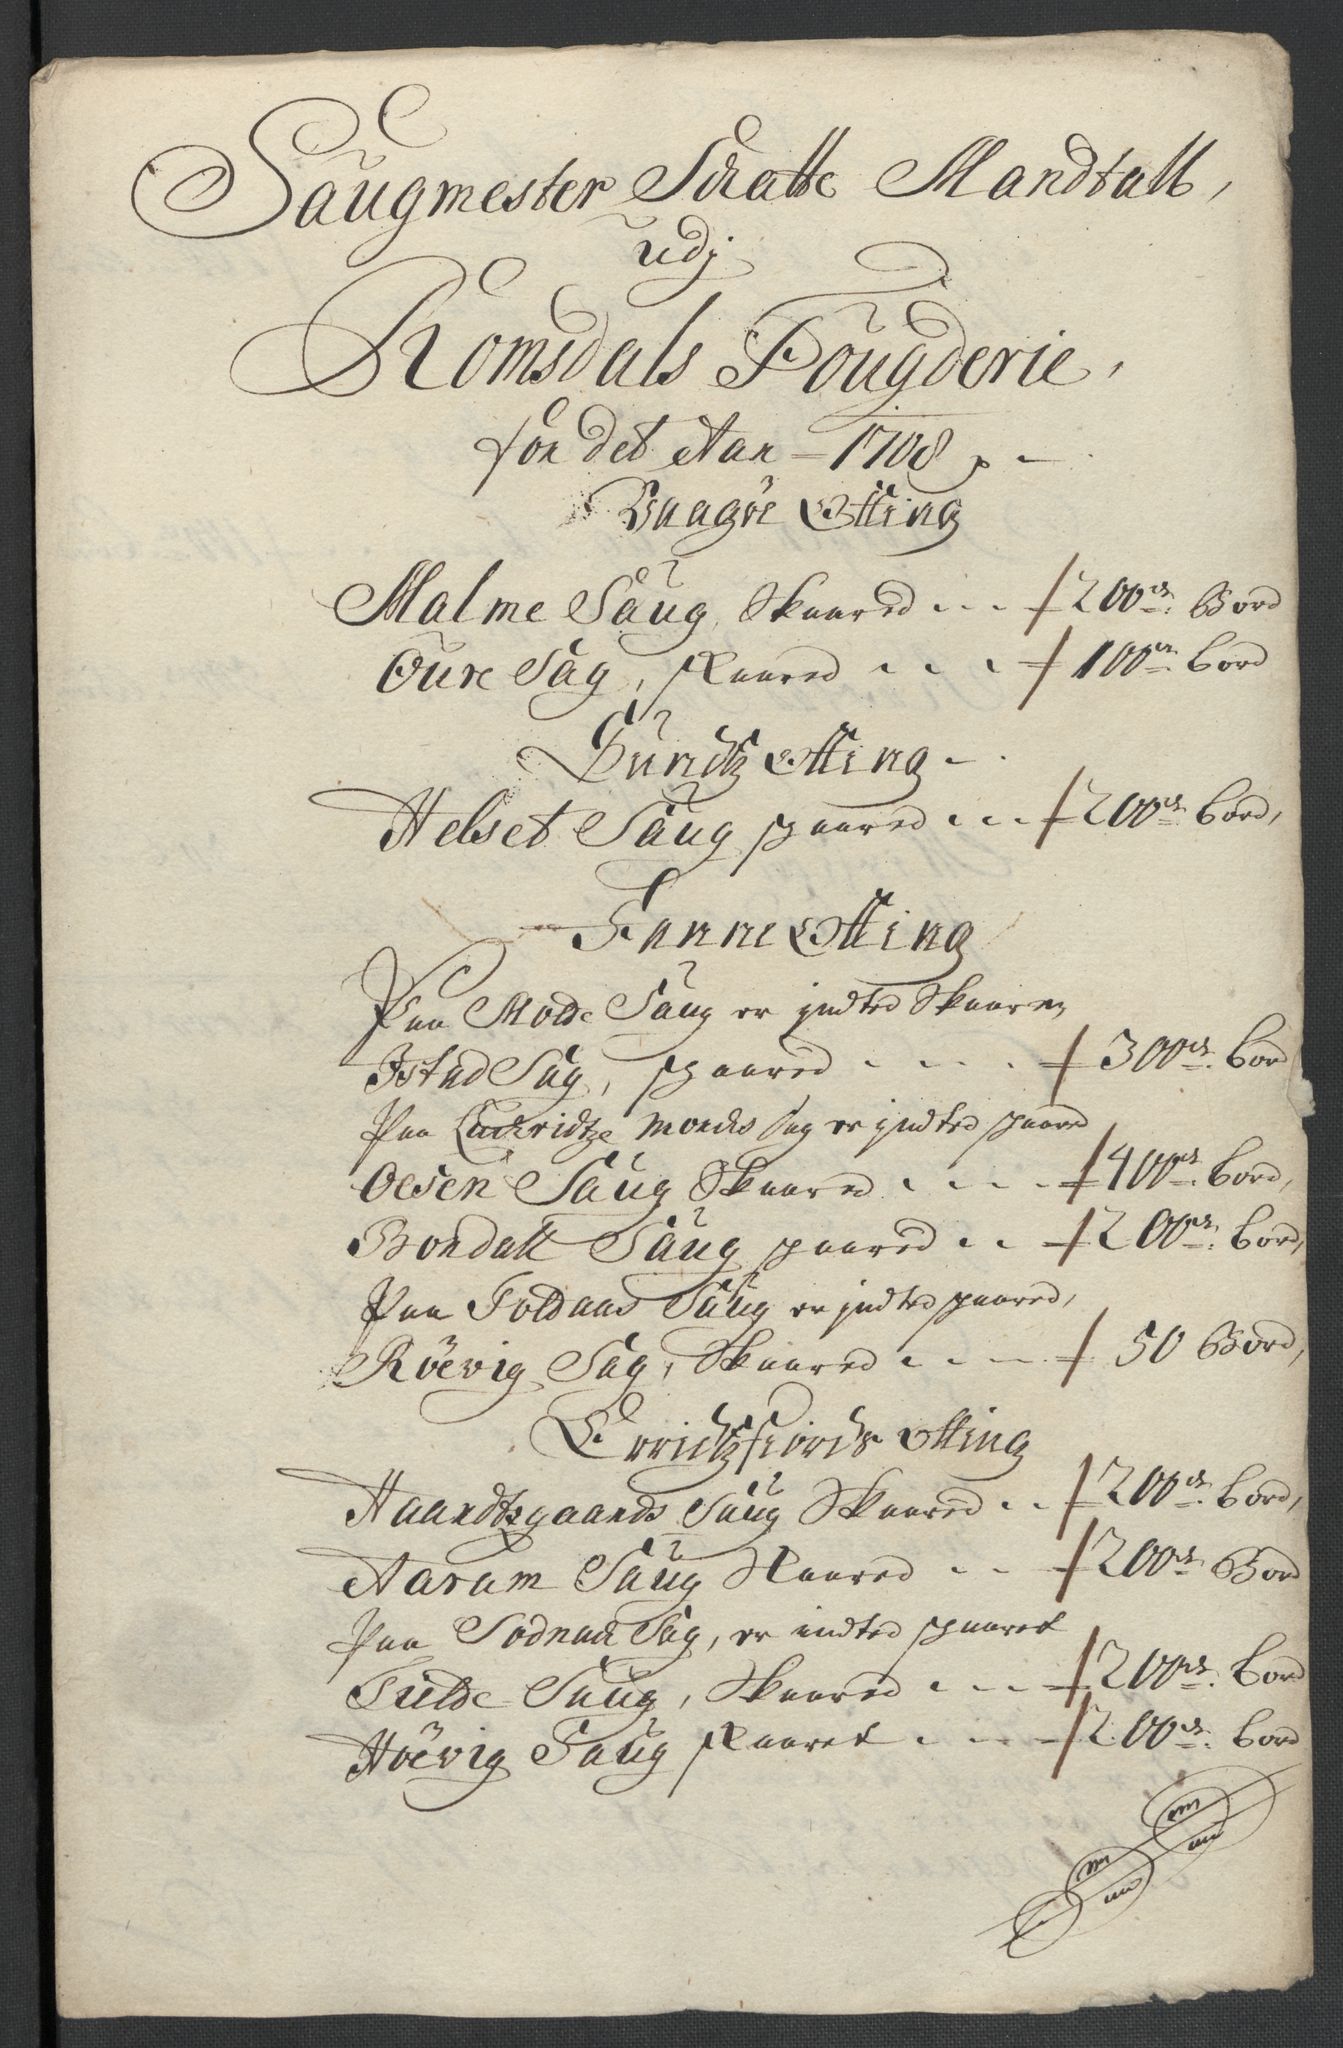 Saugmester Skatte Mandtall,
udj
Romsdals Fougderie,
for det Aar 1708
Vaagøe Otting
Malme Saug, Skaared 200de Bord
Oure Sag, skaared 100de bord
Sundtz Otting
Helset Saug skaared 200de bord,
Fanne Otting
Paa Molde Saug er jndted Skaaren,
Istad Sag, skaared 300de bord
Paa Moeds sag er jndted skaared
Oesen Saug Skaared 400de bord,
Bondall Saug skaared 200de bord,
Paa Toldaas Saug er jndted skaared,
Röevig Sag, Skaared 50 Bord,
Erridtzfiords Otting
Haandtsgaards Saug Skaared 200de bord,
Aaram Saug Skaared 200de Bord
Paa Sodnæs Sag, er indted skaaret
Tielde Saug, Skaared 200de bord
Höevig Saug skaaret 200de bord